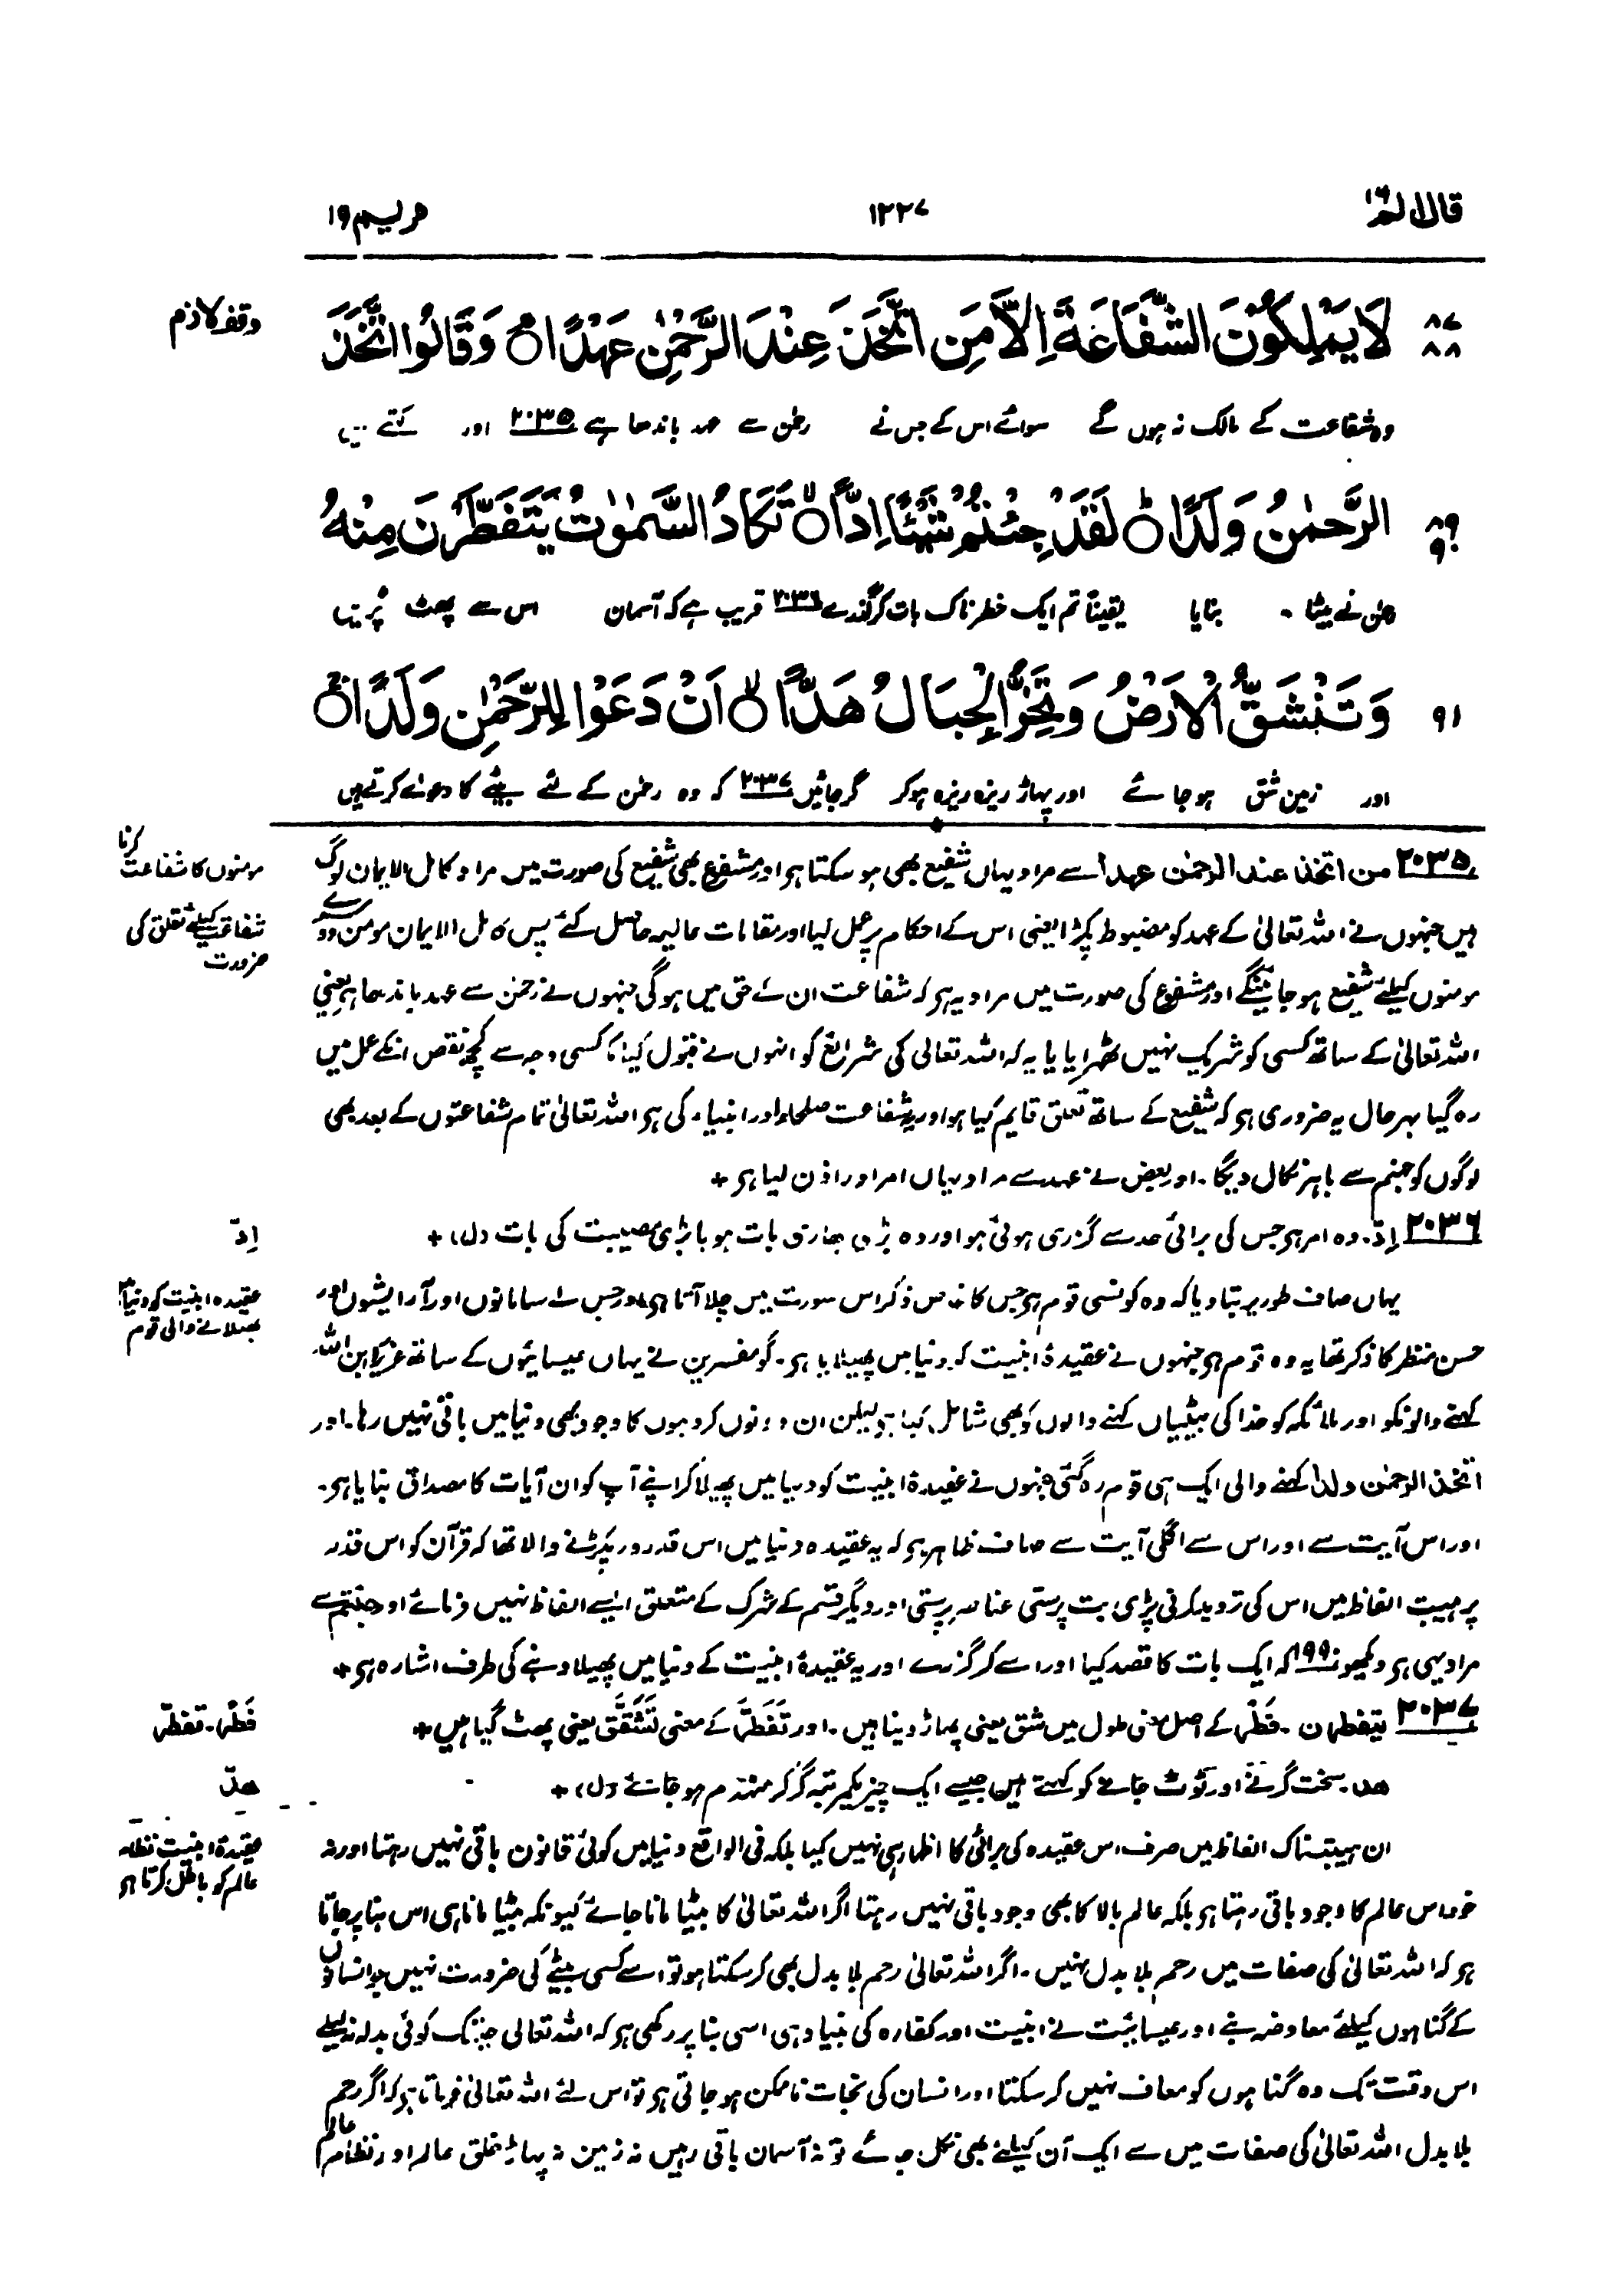 قال الم ۱۶
۱۲۲۷
مریم ۱۹
لَا يَمْلِكُوْنَ الشَّفَاعَةَ اِلَّا مَنِ اتَّخَذَ عِنْدَ الرَّحْمٰنِ عَهْدًا ۘ وَقَالُوا اتَّخَذَ
۸۷
۸۸
وقف لازم
وہ شفاعت کے مالک نہ ہوں گے سوائے اس کے جس نے رحمٰن سے عہد باندھا ہے ۲۰۳۵ اور کہتے ہیں
الرَّحْمٰنُ وَلَدًا ؕ لَقَدْ جِئْتُمْ شَيْئًا اِدًّا ۙ تَكَادُ السَّمٰوٰتُ يَتَفَطَّرْنَ مِنْهُ
۸۹
۹۰
رحمٰن نے بیٹا بنایا یقیناً تم ایک خطرناک بات کر گذرے ۲۰۳۶ قریب ہے کہ آسمان اس سے پھٹ پڑیں
وَتَنْشَقُّ الْاَرْضُ وَتَخِرُّ الْجِبَالُ هَدًّا ۙ اَنْ دَعَوْا لِلرَّحْمٰنِ وَلَدًا ۚ
۹۱
اور زمین شق ہو جائے اور پہاڑ ریزہ ریزہ ہو کر گر جائیں ۲۰۳۷ کہ وہ رحمٰن کے لئے بیٹے کا دعوےٰ کرتے ہیں
مومنوں کا شفاعت کرنا
شفاعت کیلئے تعلق کی
ضرورت
۲۰۳۵ من اتخذ عند الرحمٰن عہداً سے مراد یہاں شفیع بھی ہو سکتا ہے اور مشفوع بھی شفیع کی صورت میں مراد کامل الایمان لوگ
ہیں جنہوں نے اللہ تعالیٰ کے عہد کو مضبوط پکڑا یعنی اس کے احکام پر عمل کیا اور مقامات عالیہ حاصل کئے پس کامل الایمان مومن دوسرے
مومنوں کیلئے شفیع ہو جائینگے اور مشفوع کی صورت میں مراد یہ ہے کہ شفاعت ان کے حق میں ہوگی جنہوں نے رحمٰن سے عہد باندھا ہے یعنی
اللہ تعالیٰ کے ساتھ کسی کو شریک نہیں ٹھہرایا یا یہ کہ اللہ تعالیٰ کی شرائع کو انہوں نے قبول کیا گو کسی وجہ سے کچھ نقص انکے عمل میں
رہ گیا بہرحال یہ ضروری ہے کہ شفیع کے ساتھ تعلق قایم کیا ہو اور یہ شفاعت صلحاء اور انبیاء کی ہے اللہ تعالیٰ تمام شفاعتوں کے بعد بھی
لوگوں کو جہنم سے باہر نکال دیگا۔ اور بعض نے عہد سے مراد یہاں امر اور اذن لیا ہے +
اِدّ
۲۰۳۶ اِدّ۔ وہ امر ہے جس کی برائی حد سے گزری ہوئی ہو اور وہ بڑی بھاری بات ہو یا بڑی مصیبت کی بات (ل) +
عقیدہ ابنیت کو دنیا میں
پھیلانے والی قوم
یہاں صاف طور پر بتا دیا کہ وہ کونسی قوم ہے جس کا خاص ذکر اس سورت میں چلا آتا ہے اور جس کے سامانوں اور آرایشوں اور
حسن منظر کا ذکر تھا یہ وہ قوم ہے جنہوں نے عقیدۂ ابنیت کو دنیا میں پھیلایا ہے۔ گو مفسرین نے یہاں عیسائیوں کے ساتھ عزیر ابن اللہ
کہنے والونکو اور ملائکہ کو خدا کی بیٹیاں کہنے والوں کو بھی شامل کیا ہے لیکن ان دونوں گروہوں کا وجود بھی دنیا میں باقی نہیں رہا۔ اور
اتخذ الرحمٰن ولدا کہنے والی ایک ہی قوم رہ گئی جنہوں نے عقیدۂ ابنیت کو دنیا میں پھیلا کر اپنے آپ کو ان آیات کا مصداق بنایا ہے۔
اور اس آیت سے اور اس سے اگلی آیت سے صاف ظاہر ہے کہ یہ عقیدہ دنیا میں اس قدر زور پکڑنے والا تھا کہ قرآن کو اس قدر
پر ہیبت الفاظ میں اس کی تردید کرنی پڑی بت پرستی عناصر پرستی اور دیگر قسم کے شرک کے متعلق ایسے الفاظ نہیں فرمائے اور جئتم سے
مراد یہی ہے دیکھو ۱۹۹۰ کہ ایک بات کا قصد کیا اور اسے کر گزرے اور یہ عقیدۂ ابنیت کے دنیا میں پھیلا دینے کی طرف اشارہ ہے +
فَطَر۔ تفطّر
۲۰۳۷ یتفطرن۔ فَطْر کے اصل معنی طول میں شق یعنی پھاڑ دینا ہیں۔ اور تَفَطَّرَ کے معنی تَشَقَّقَ یعنی پھٹ گیا ہیں +
ھدّ
ھد۔ سخت گرنے اور ٹوٹ جانے کو کہتے ہیں جیسے ایک چیز یکمرتبہ گر کر منہدم ہو جائے (ل) +
عقیدۂ ابنیت نظام
عالم کو باطل کرتا ہے
ان ہیبتناک الفاظ میں صرف اس عقیدہ کی برائی کا اظہار ہی نہیں کیا بلکہ فی الواقع دنیا میں کوئی قانون باقی نہیں رہتا اور نہ
خود اس عالم کا وجود باقی رہتا ہے بلکہ عالم بالا کا بھی وجود باقی نہیں رہتا اگر اللہ تعالیٰ کا بیٹا مانا جائے کیونکہ بیٹا مانا ہی اس بنا پر جاتا
ہے کہ اللہ تعالیٰ کی صفات میں رحم بلا بدل نہیں۔ اگر اللہ تعالیٰ رحم بلا بدل بھی کر سکتا ہو تو اسے کسی بیٹے کی ضرورت نہیں جو انسانوں
کے گناہوں کیلئے معاوضہ بنے اور عیسائیت نے ابنیت اور کفارہ کی بنیاد ہی اسی بنا پر رکھی ہے کہ اللہ تعالیٰ جب تک کوئی بدلہ نہ لیلے
اس وقت تک وہ گناہوں کو معاف نہیں کر سکتا اور انسان کی نجات ناممکن ہو جاتی ہے تو اس لئے اللہ تعالیٰ فرماتا ہے کہ اگر رحم
بلا بدل اللہ تعالیٰ کی صفات میں سے ایک آن کیلئے بھی نکل جائے تو نہ آسمان باقی رہیں نہ زمین نہ پہاڑ خلق عالم اور نظام عالم